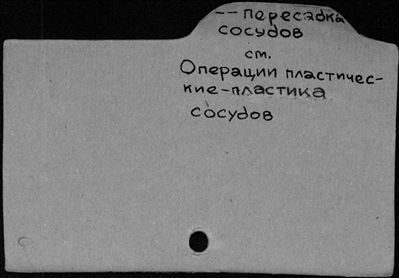 -- Пересадка
сосудов
см.
Операции пластичес-
кие-пластика
сосудов